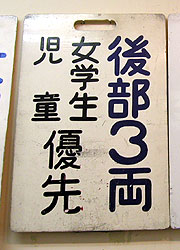 後部3両
女学生
児童
優先